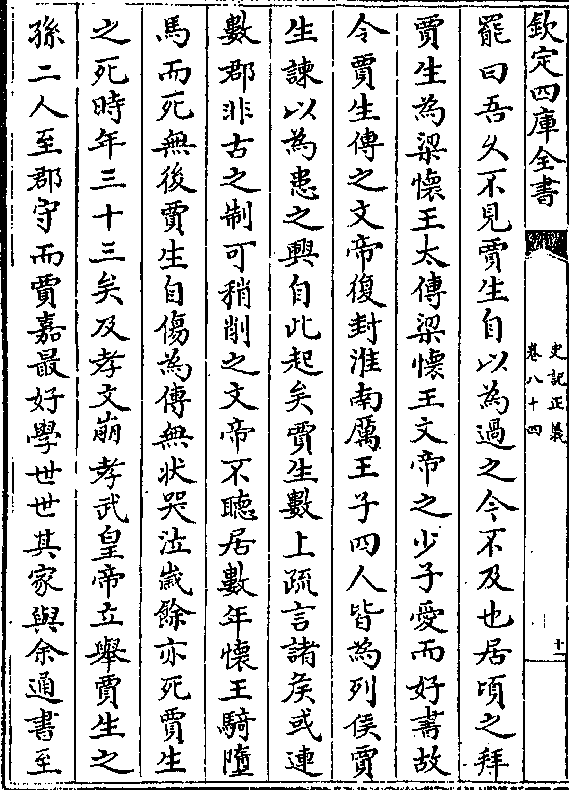 欽定四庫全書
史記正義
卷八十四
十一
罷曰吾乆不見賈生自以為過之今不及也居頃之拜
賈生為梁懷王太傅梁懷王文帝之少子愛而好書故
令賈生傅之文帝復封淮南厲王子四人皆為列侯賈
生諫以為患之興自此起矣賈生數上疏言諸侯或連
數郡非古之制可稍削之文帝不聽居數年懷王騎墮
馬而死無後賈生自傷為傅無状哭泣歲餘亦死賈生
之死時年三十三矣及孝文崩孝武皇帝立舉賈生之
孫二人至郡守而賈嘉最好學世世其家與余通書至